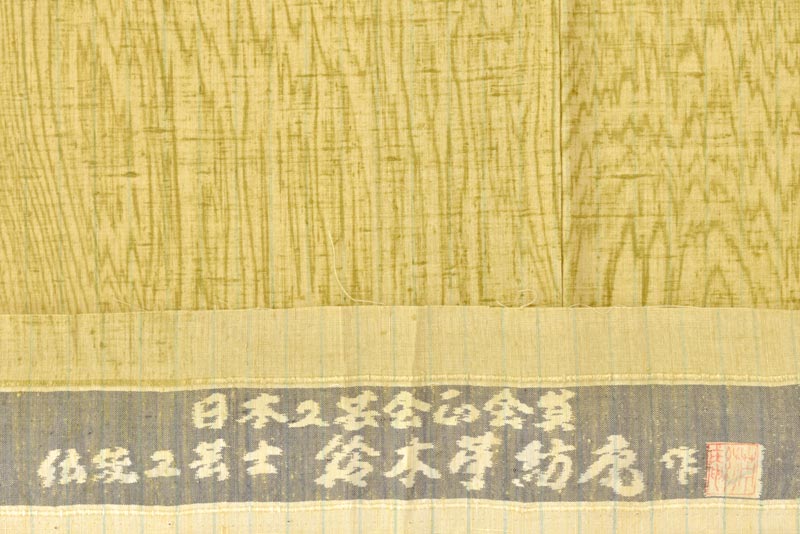 日本工芸会正会員
伝統工芸士 鈴木苧紡庵 作